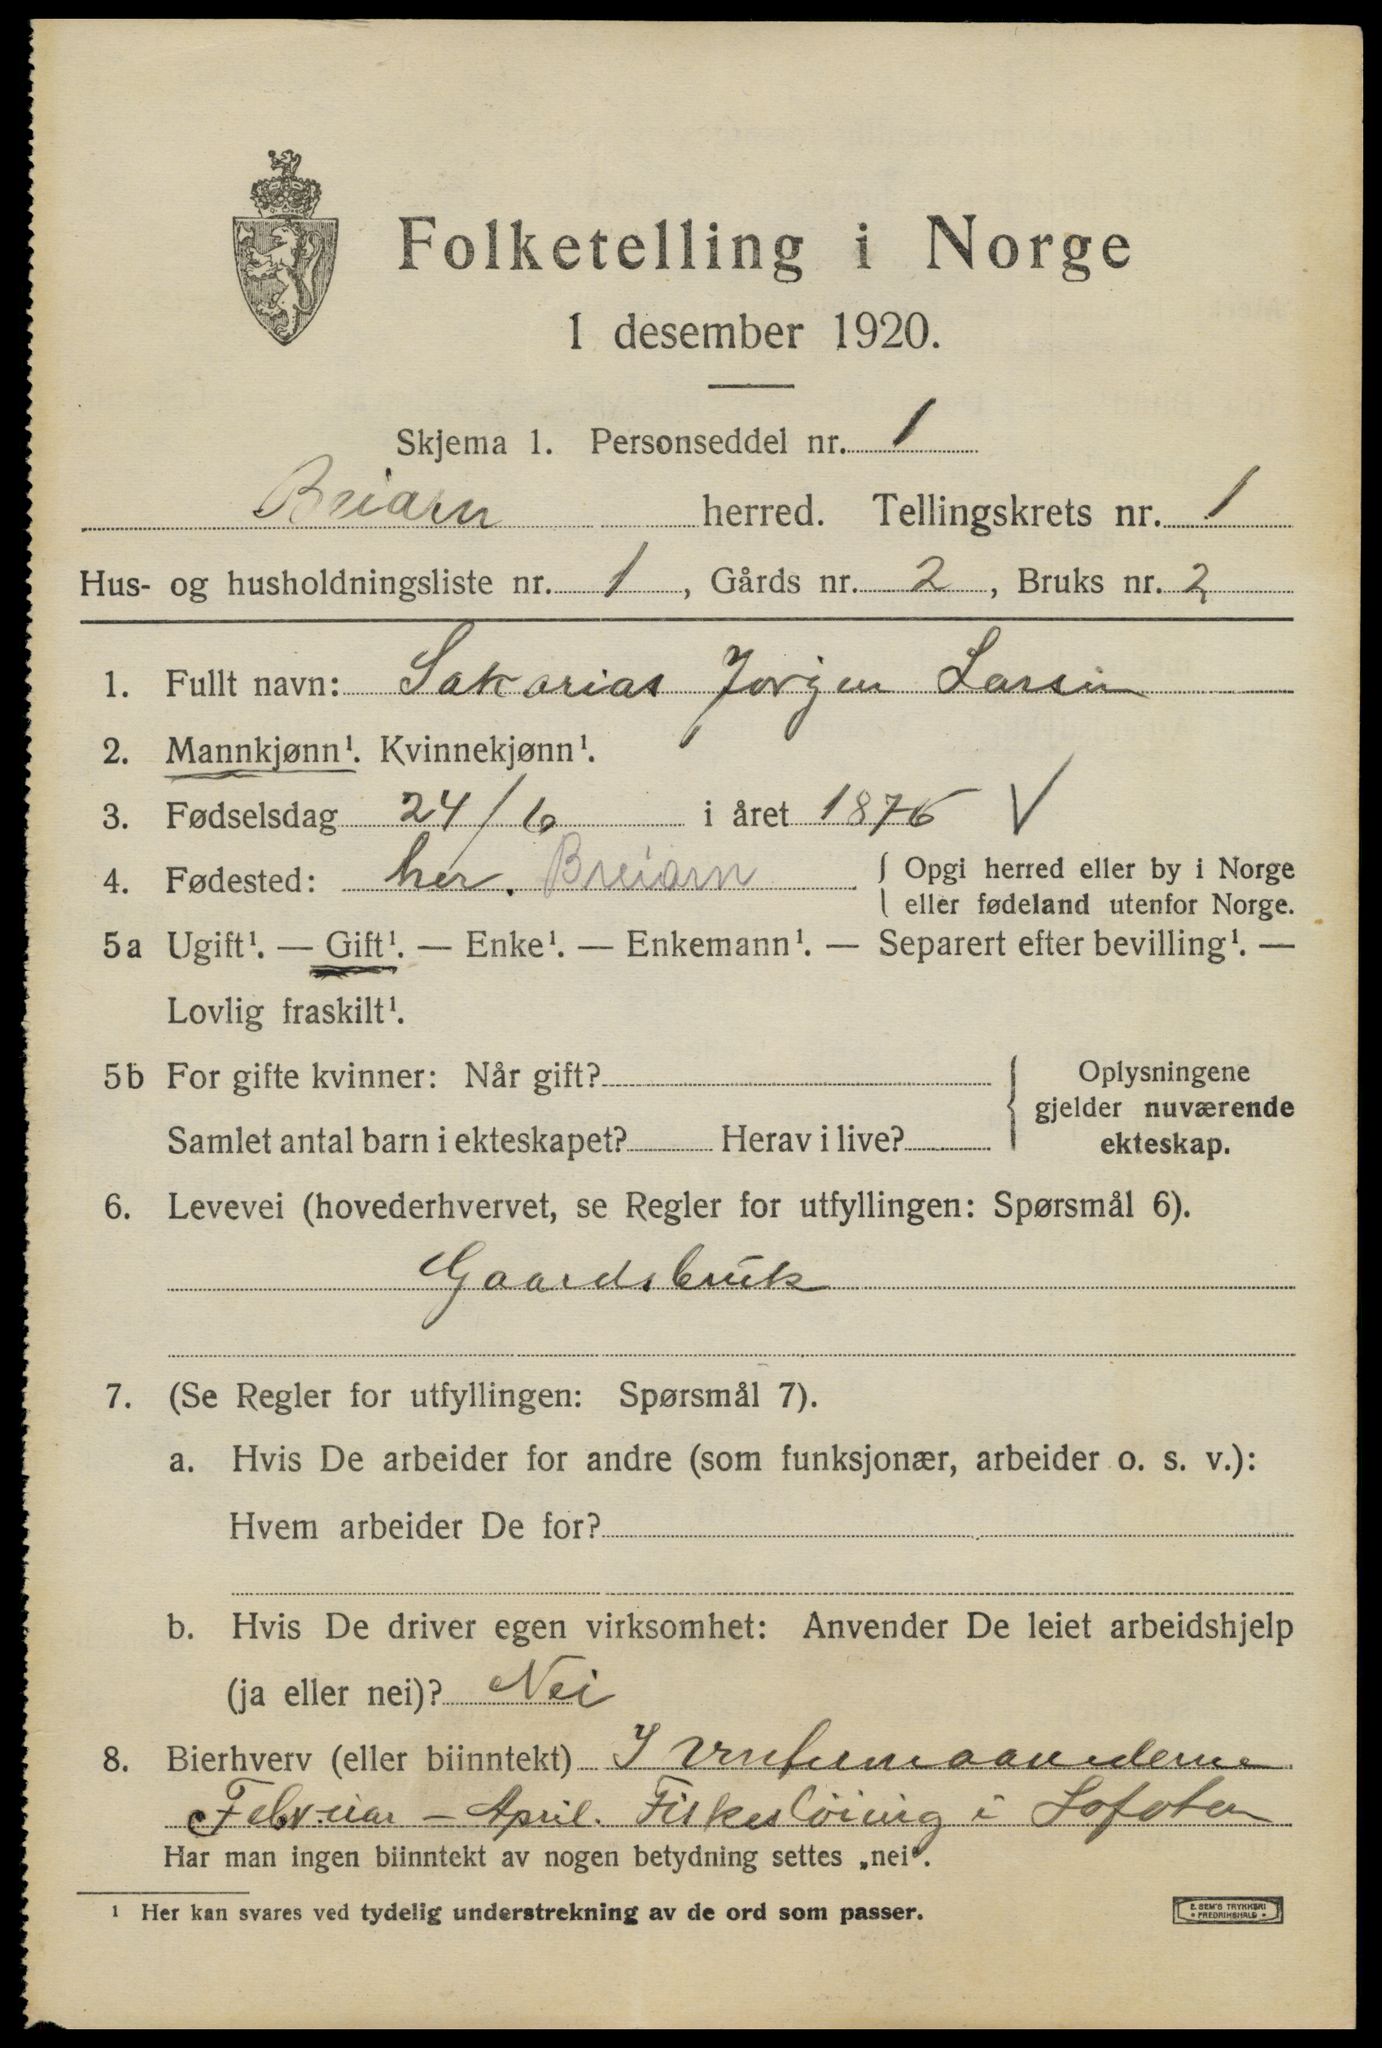 Folketelling i Norge
1 desember 1920.
Skjema 1. Personseddel nr. 1
Beiarn herred. Tellingskrets nr. 1
Hus- og husholdningsliste nr. 1, Gårds nr. 2, Bruks nr. 2
1. Fullt navn: Sakarias Jørgen Larsen
2. Mannkjønn¹. Kvinnekjønn¹.
3. Fødselsdag 24/6 i året 1876 V
4. Fødested: her. Beiarn { Opgi herred eller by i Norge
eller fødeland utenfor Norge.
5a Ugift¹. — Gift¹. — Enke¹. — Enkemann¹. — Separert efter bevilling¹. —
Lovlig fraskilt¹.
5b For gifte kvinner: Når gift?
Samlet antal barn i ekteskapet? Herav i live?
Oplysningene
gjelder nuværende
ekteskap.
6. Levevei (hovederhvervet, se Regler for utfyllingen: Spørsmål 6).
Gaardsbruk
7. (Se Regler for utfyllingen: Spørsmål 7).
a. Hvis De arbeider for andre (som funksjonær, arbeider o. s. v.):
Hvem arbeider De for?
b. Hvis De driver egen virksomhet: Anvender De leiet arbeidshjelp
(ja eller nei)? Nei
8. Bierhverv (eller biinntekt) I vintermaanederne
Februar – April. Fiskeslöinig i Lofoten
Har man ingen biinntekt av nogen betydning settes „nei".
¹ Her kan svares ved tydelig understrekning av de ord som passer.
E. SEM'S TRYKKERI
• FREDRIKSHALD •